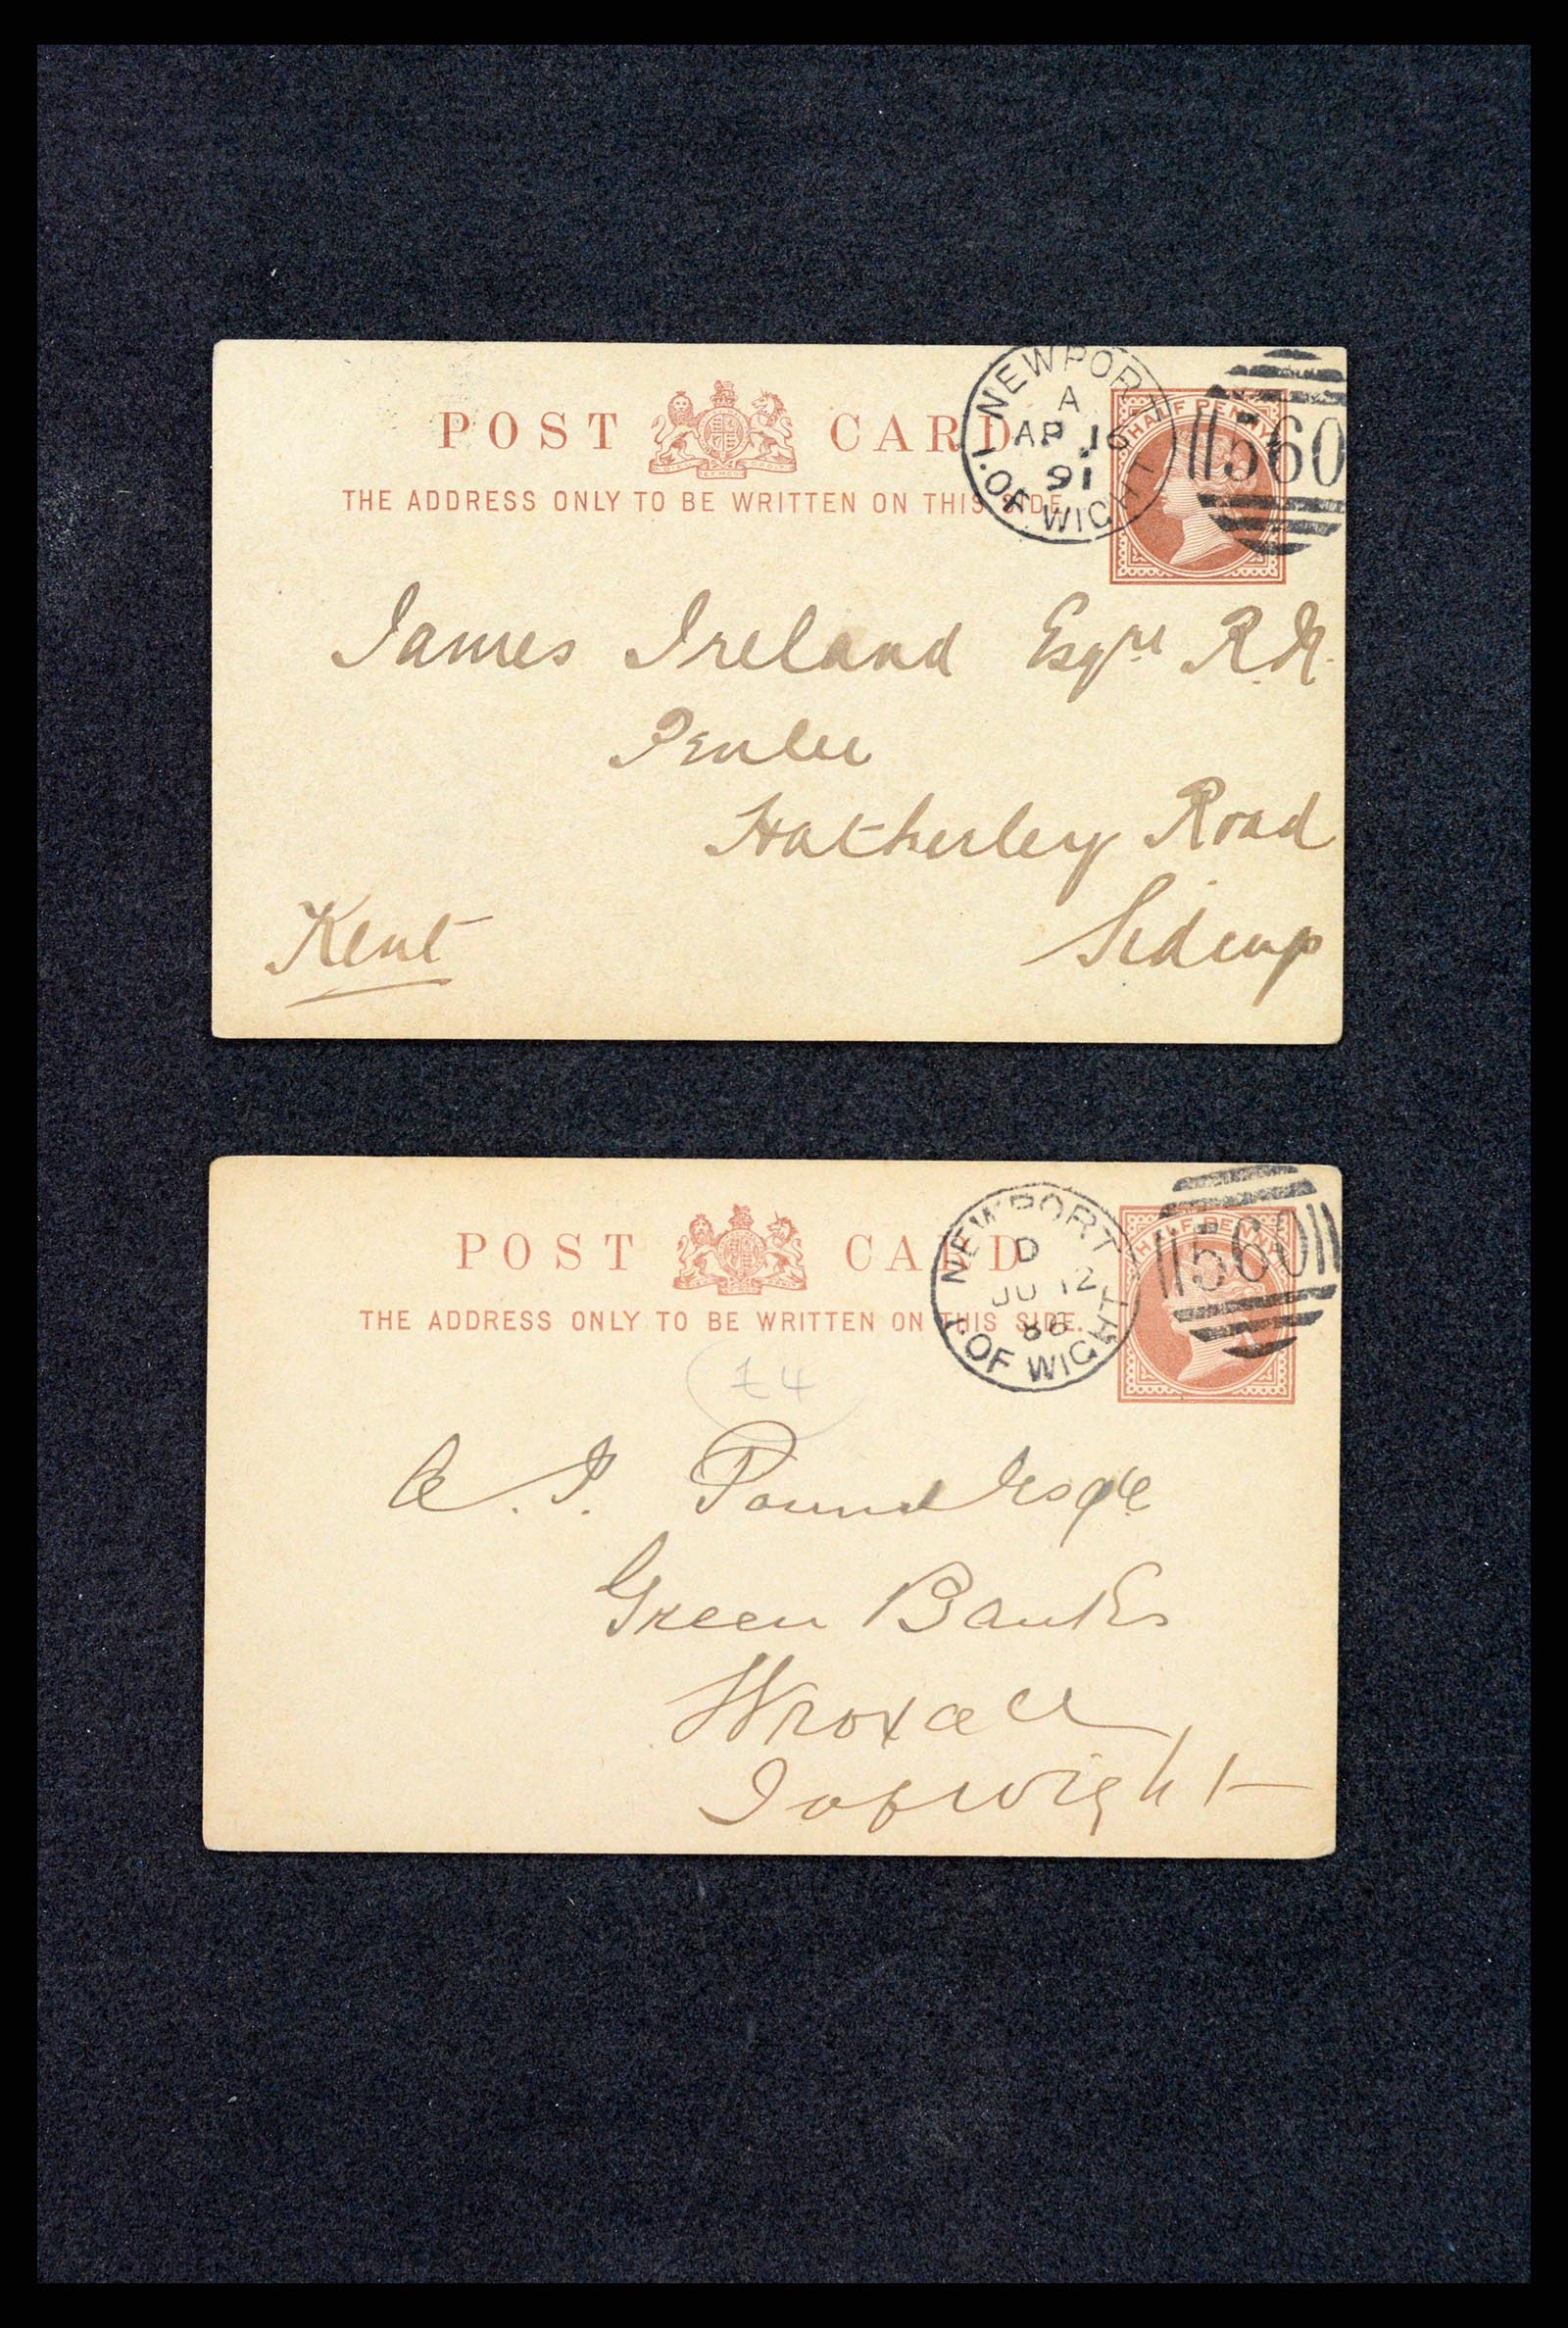 POST CARD
THE ADDRESS ONLY TO BE WRITTEN ON THIS SIDE.
NEWPORT
A
AP 16
91
I. OF WIGHT
HALF PENNY
560
James Ireland Esqre R.N.
Penlee
Hatherley Road
Sidcup
Kent
POST CARD
THE ADDRESS ONLY TO BE WRITTEN ON THIS SIDE.
NEWPORT
D
JU 12
86
I. OF WIGHT
HALF PENNY
560
£4
Pound Esqre
Green Banks
Wroxall
I of Wight